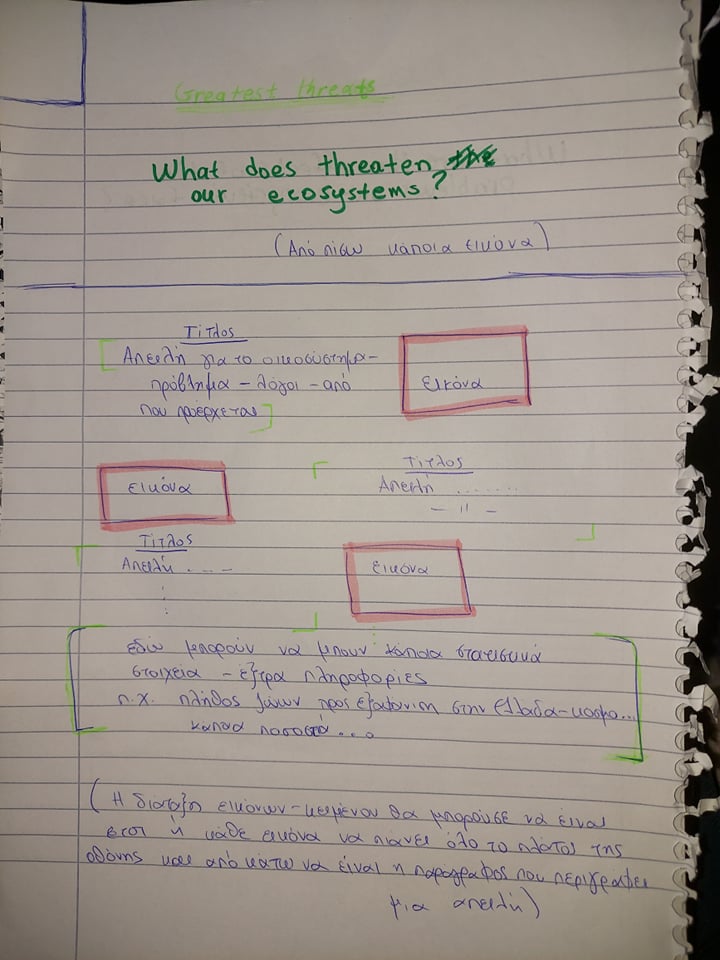 Greatest threats
What does threaten
our ecosystems?
(Από πίσω κάποια εικόνα)
Τίτλος
Απειλή για το οικοσύστημα-
πρόβλημα - λόγοι - από
που προέρχεται
εικόνα
εικόνα
Τίτλος
Απειλή ........
- " -
Τίτλος
Απειλή ... -
εικόνα
εδώ μπορούν να μπουν κάποια
στοιχεία - έξτρα πληροφορίες
π.χ. πλήθος ζώων προς εξαφάνιση στην Ελλάδα-κοσμο...
κάποια ποσοστά...
(Η διάταξη εικόνων-κειμένου θα μπορούσε να είναι
έτσι ή κάθε εικόνα να πιάνει όλο το πλάτος της
οθόνης και από κάτω να είναι η παράγραφος που περιγράφει
μια απειλή)